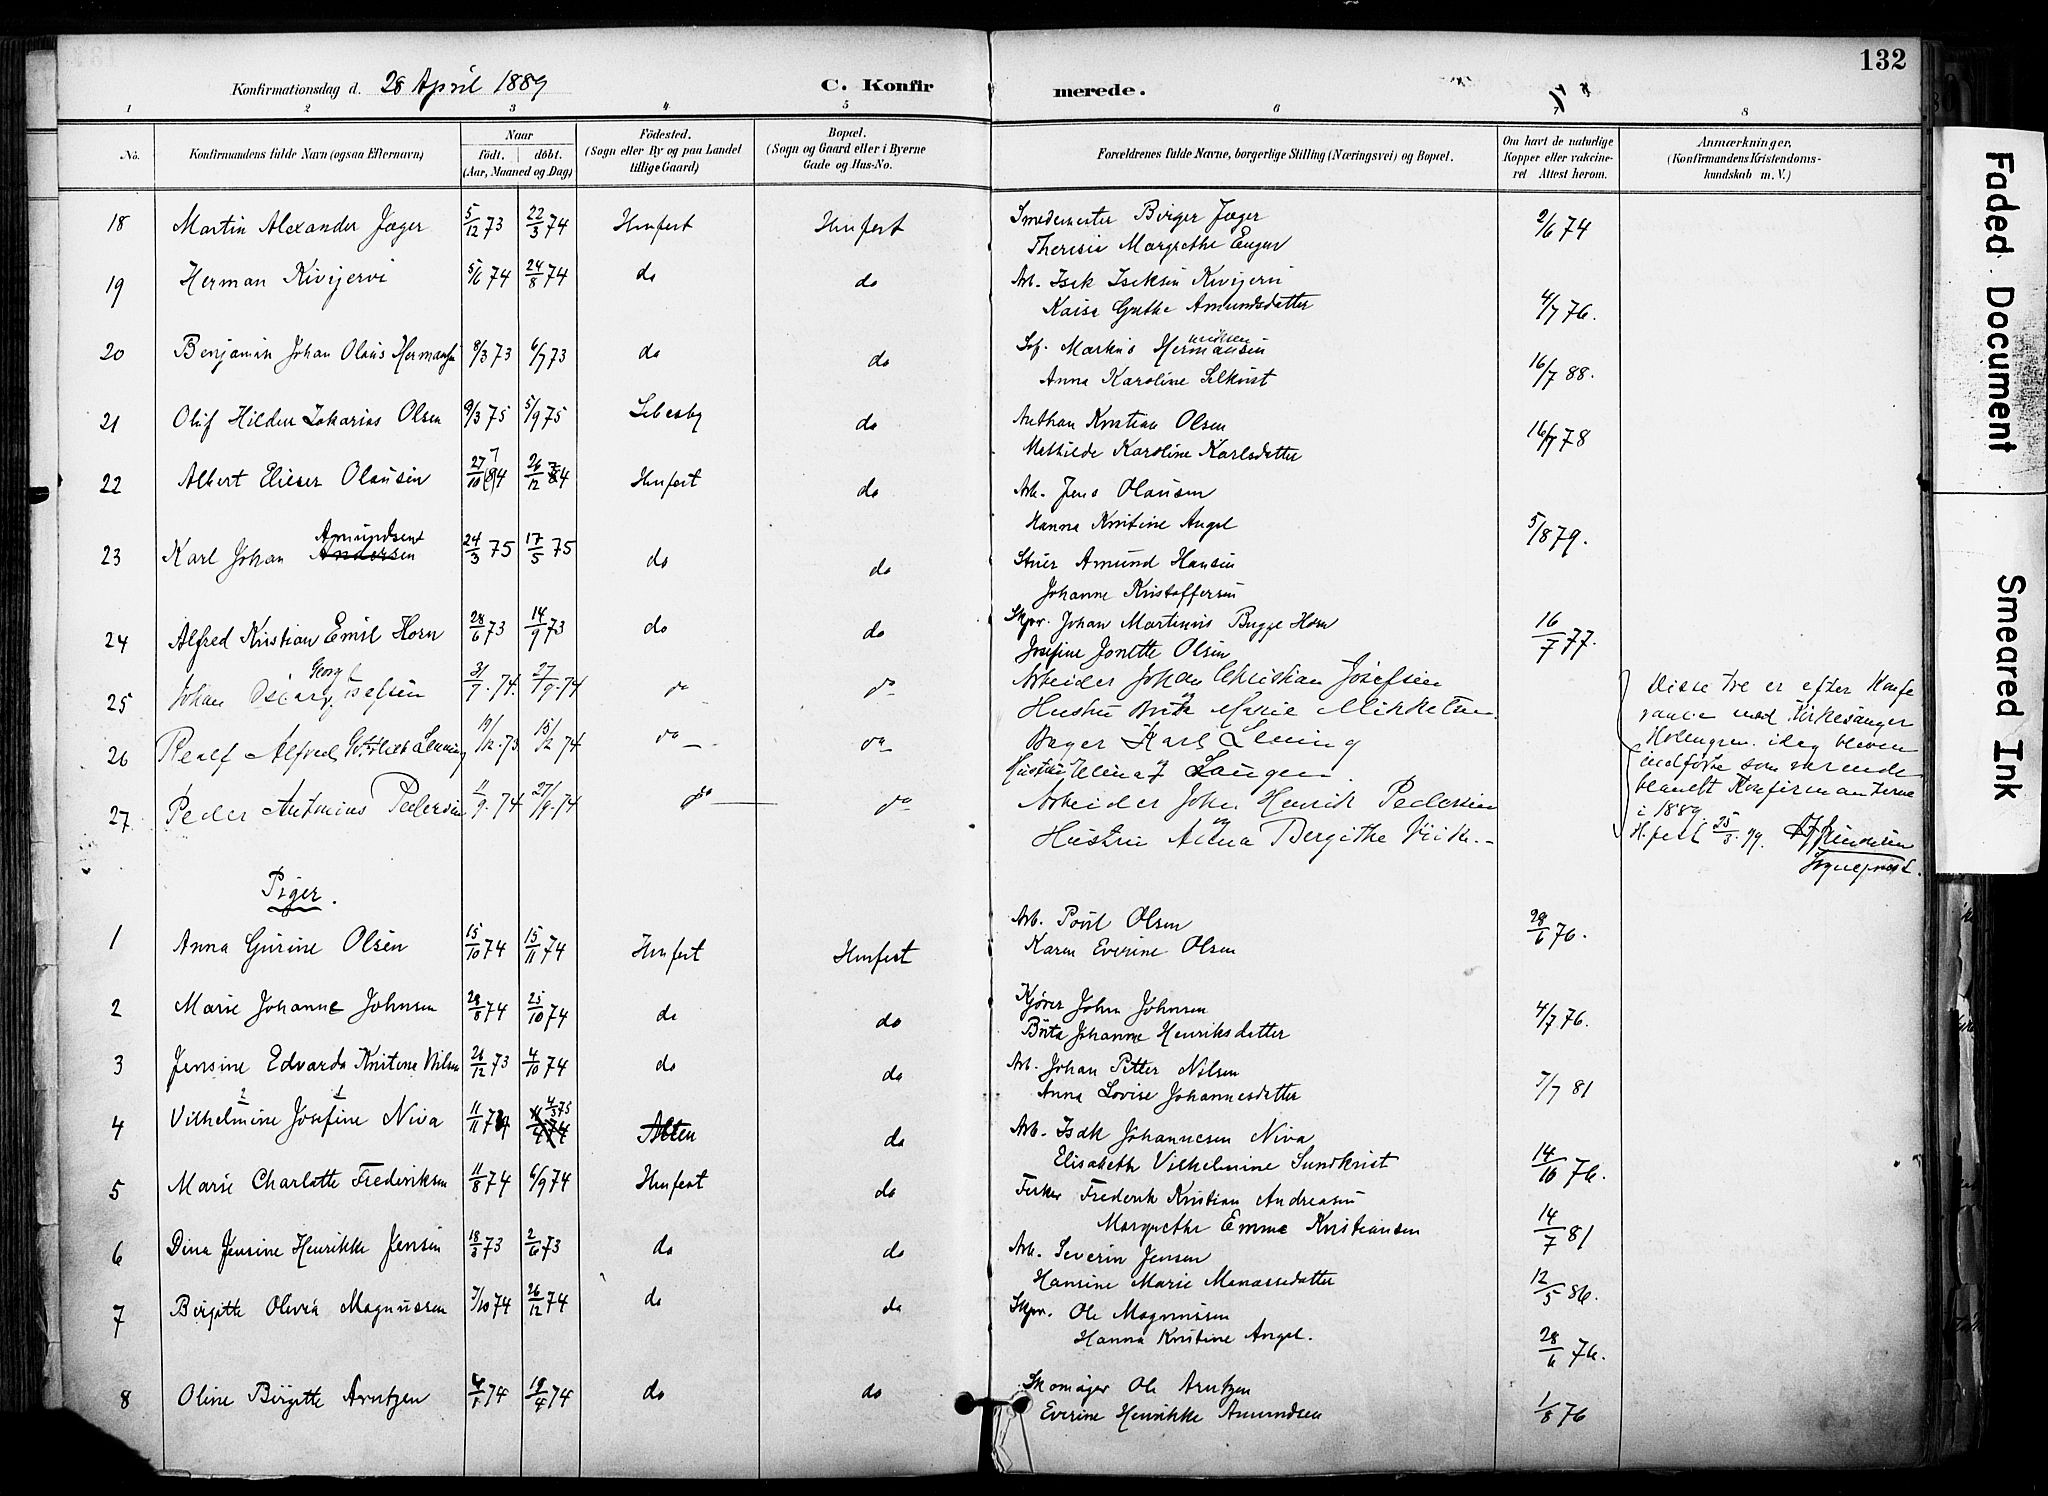 132
Konfirmationsdag d. 28 April 1889 C. Konfirmerede.
1 2 3 4 5 6 7 8
No. Konfirmandens fulde Navn (ogsaa Efternavn) Naar født. døbt. (Aar, Maaned og Dag) Fødested. (Sogn eller By og paa Landet tillige Gaard) Bopæl. (Sogn og Gaard eller i Byerne Gade og Hus-No. Forældrenes fulde Navne, borgerlige Stilling (Næringsvei) og Bopæl. Om havt de naturlige Kopper eller vaccineret Attest herom. Anmærkninger, (Konfirmandens Kristendomskundskab m. V.)
18 Martin Alexander Jæger 5/12 73 22/3 74 Hmfest Hmfest Smedemester Birger Jæger 2/6 74
Theresie Margrethe
19 Herman Kivijervi 5/6 74 24/8 74 do do Arb. Isak Isaksen Kivijervi
Kaisa Grethe Amundsdatter 4/7 76.
20 Benjamin Johan Olaus Hermansen 8/3 73 6/7 73 do do Markus Hermansen
Anna Karoline 16/7 88.
21 Oluf Hilden Zakarias Olsen 9/3 75 5/9 75 Lebesby do Kristian Olsen
Mathilde Karoline Karlsdatter 16/7 78
22 Albert Elieser Olausen 27/10 74 26/12 74 Hmfest do Arb. Jens Olausen
Hanna Kristine Angel 5/8 79.
23 Karl Johan Andersen Amundsen 24/3 75 17/5 75 do do Amund Hansen
Johanne Kristoffersen
24 Alfred Kristian Emil Horn 28/6 73 14/9 73 do do Skpr. Johan Martinus Bugge Horn 16/7 77.
Josefine Jonette Olsen
25 Johan Oscar Georg Josefsen 31/7 74. 27/9 74 do do Arbeider Johan Christian Josefsen
Hustru Marie Mikkelsen
26 Alfred Lening 19/12 73 15/2 74 do do Bager Karl Lening
Hustru Elina f Langen.
27 Peder Antonius Pedersen 11/9 74 27/9 74 do do Arbeider John Henrik Pedersen
Hustru Bergithe
Disse tre er efter
med Kirkesanger
Holmgren idag bleven
indførte som værende
blandt Konfirmanterne
i 1889.
25/3
Sogneprest.
Piger.
1 Anna Gurine Olsen 15/10 74 15/11 74 Hmfest Hmfest Arb. Poul Olsen 28/6 76.
Karen Everine Olsen
2 Marie Johanne Johnsen 28/8 74 25/10 74 do do John Johnsen 4/7 76.
Johanne Henriksdatter
3 Jensine Edvarda Kristine Nilsen 26/12 73 4/10 74 do do Arb. Johan Petter Nilsen 7/7 81
Anna Lovise Johannesdatter
4 Vilhelmine Josefine Niva 11/11 74 4/3 75 Alten do Arb. Isak Johannesen Niva
Elisabeth Vilhelmine Sundkvist 14/10 76.
5 Marie Charlotte Frederiksen 11/8 74 6/9 74 Hmfest do Fisker Frederik Kristian Andreasen
Margrethe Emma Kristiansen 14/7 81
6 Dina Jensine Henrikke Jensen 18/3 73 2/6 73 do do Arb. Severin Jensen
Hansine Marie Manassedatter 12/5 86.
7 Birgitte Olivia Magnussen 7/10 74 26/12 74 do do Skpr. Ole Magnussen
Hanna Kristine Angel. 28/6 76.
8 Oline Birgitte Arntzen 74 19/4 74 do do Skomager Ole Arntzen
Everine Henrikke Amundsen 1/8 76
Faded Document
Smeared Ink